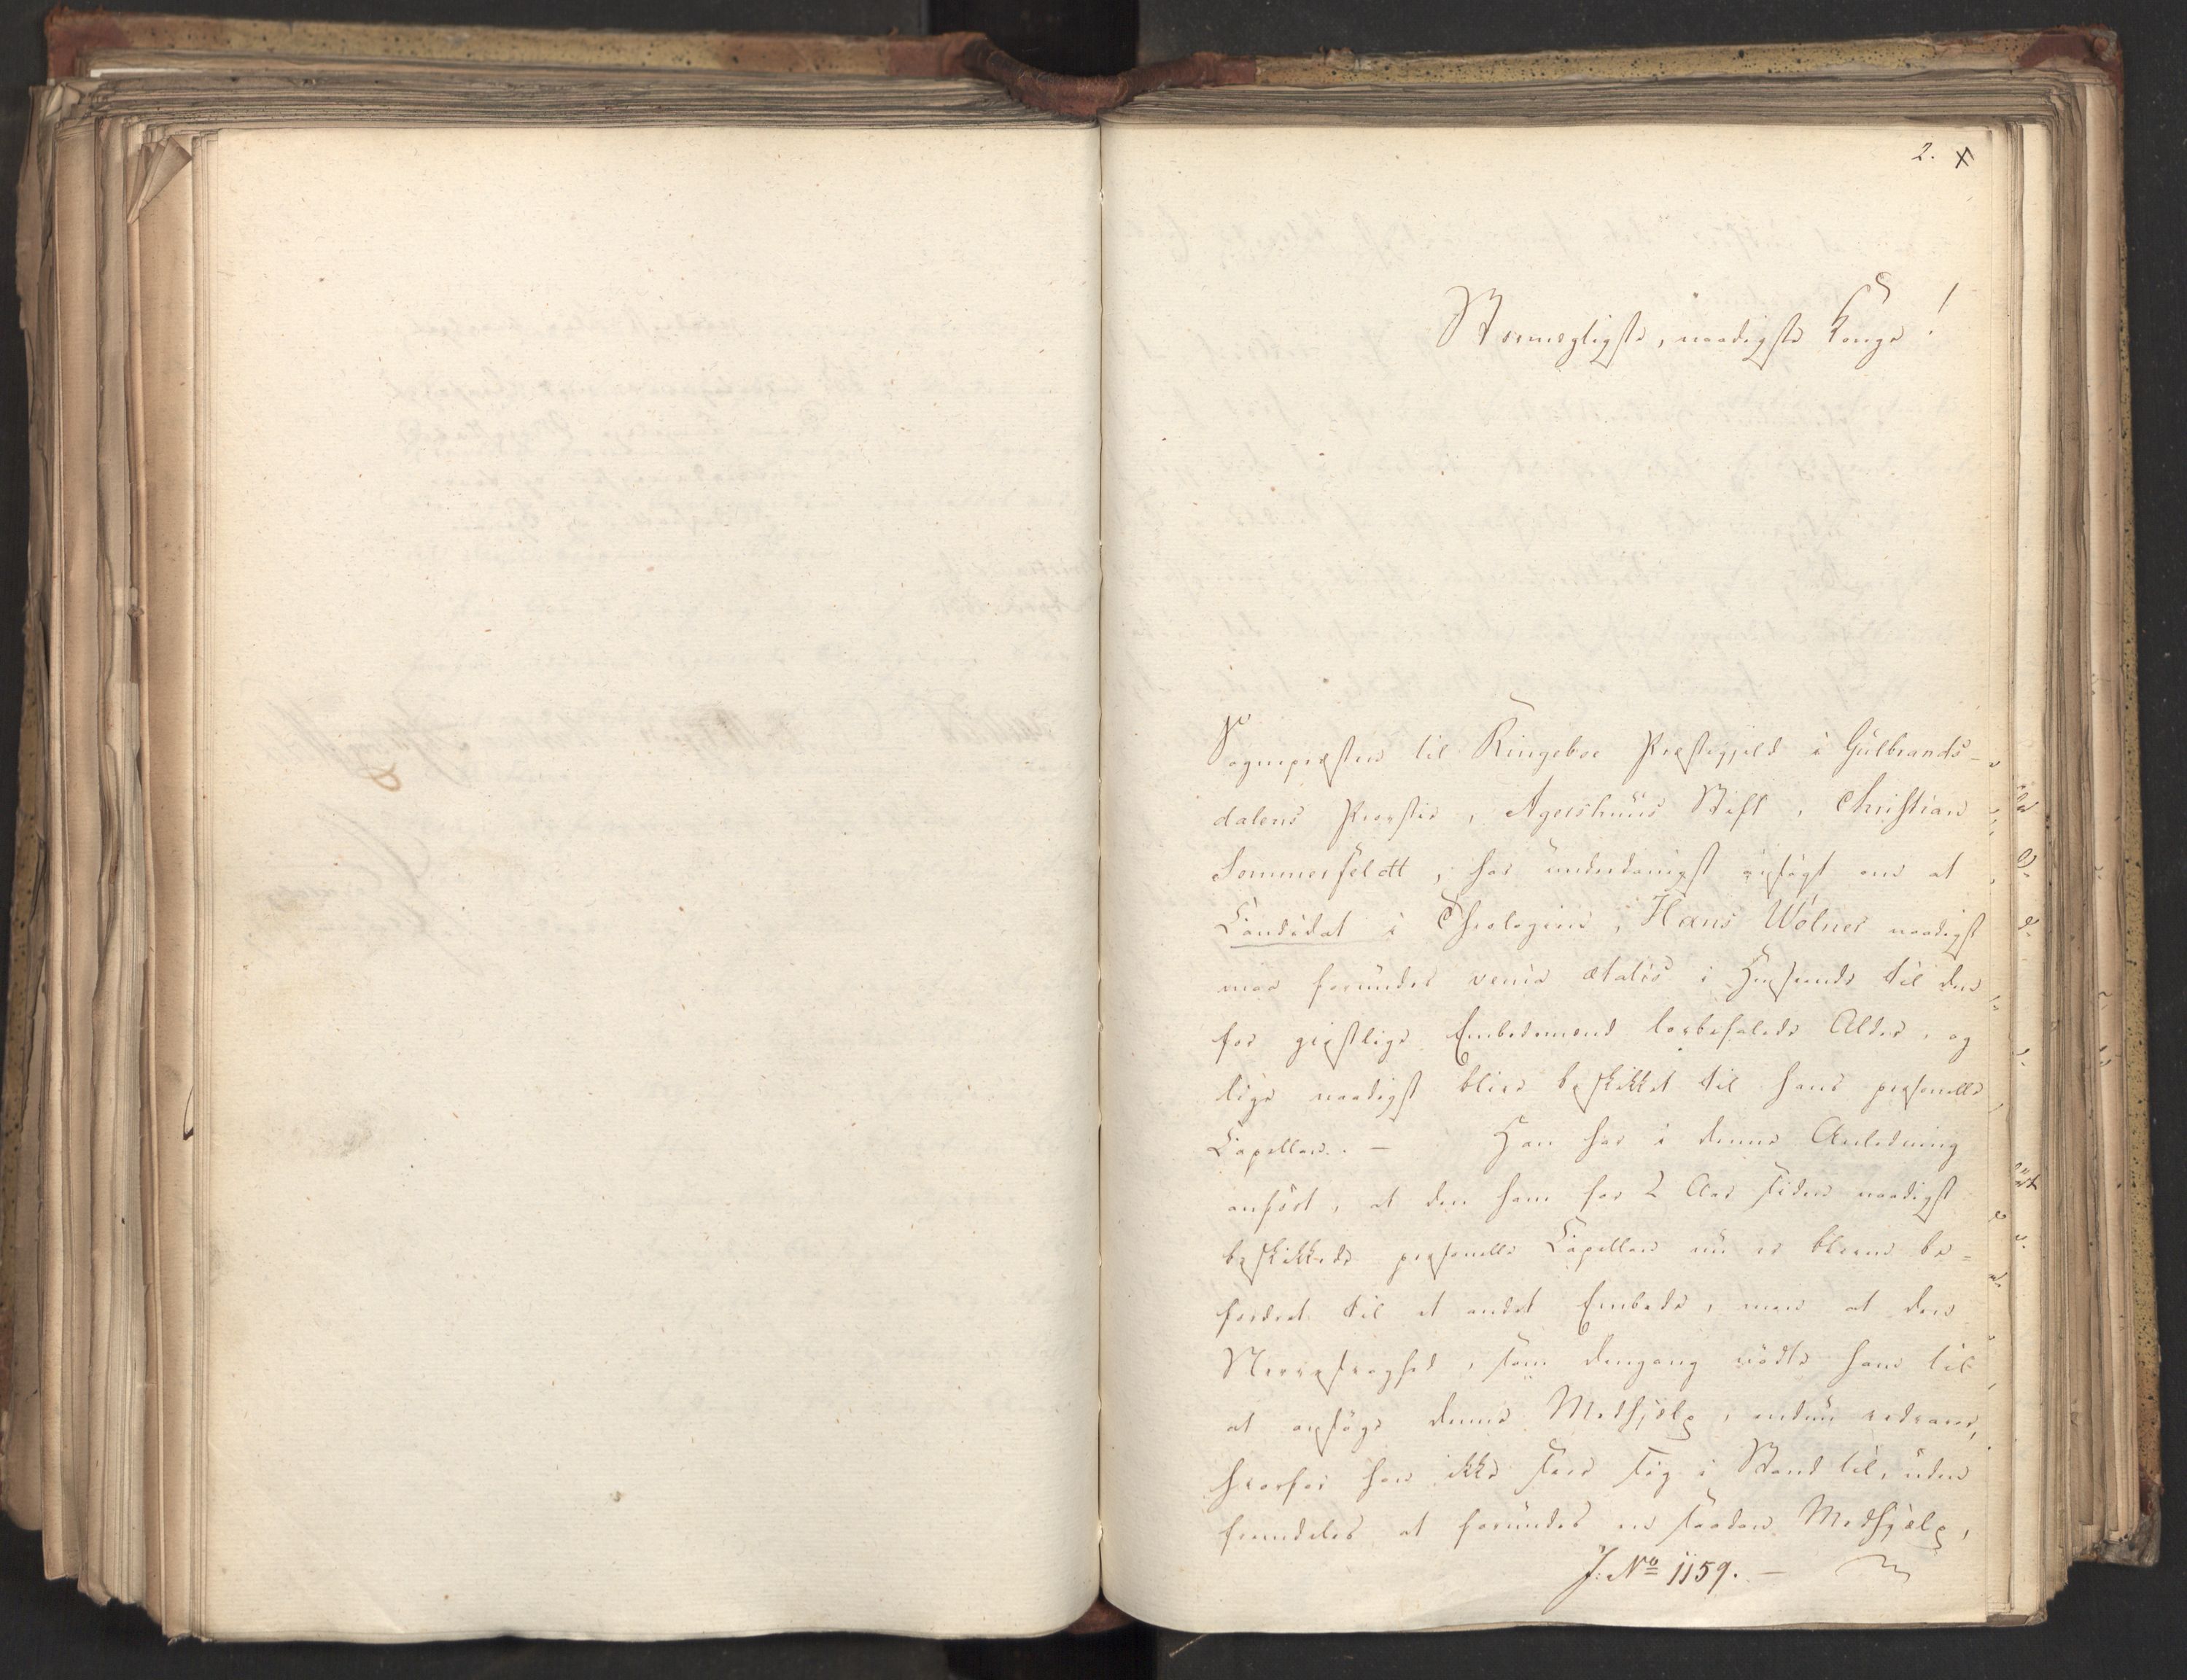 2. X
Stormægtigste, naadigste Konge!
Sognepræsten til Ringeboe Præstegjeld i Gülbrands-
dalens Provstie, Agershuus Stift, Christian
Sommerfeldt, har underdanigst ansøgt om at
Candidat i Theologien, Hans Wölner naadigst
maa forundes venia ætatis i Henseende til den
for geistlige Embedsmænd lovbefalede Alder, og
lige naadigst blive beskikket til hans personelle
Capellan. - Han har i denne Anledning
anført, at den ham for 2 Aar siden naadigst
beskikkede personelle Capellan nu er bleven be-
fordret til et andet Embede, men at den
Nervesvaghed, som dengang nødte ham til
at ansøge denne Medhjelp, endnu vedvarer,
hvorfor han ikke seer sig i Stand til, uden
fremdeles at forundes en saadan Medhjælp,
J: No 1159. -